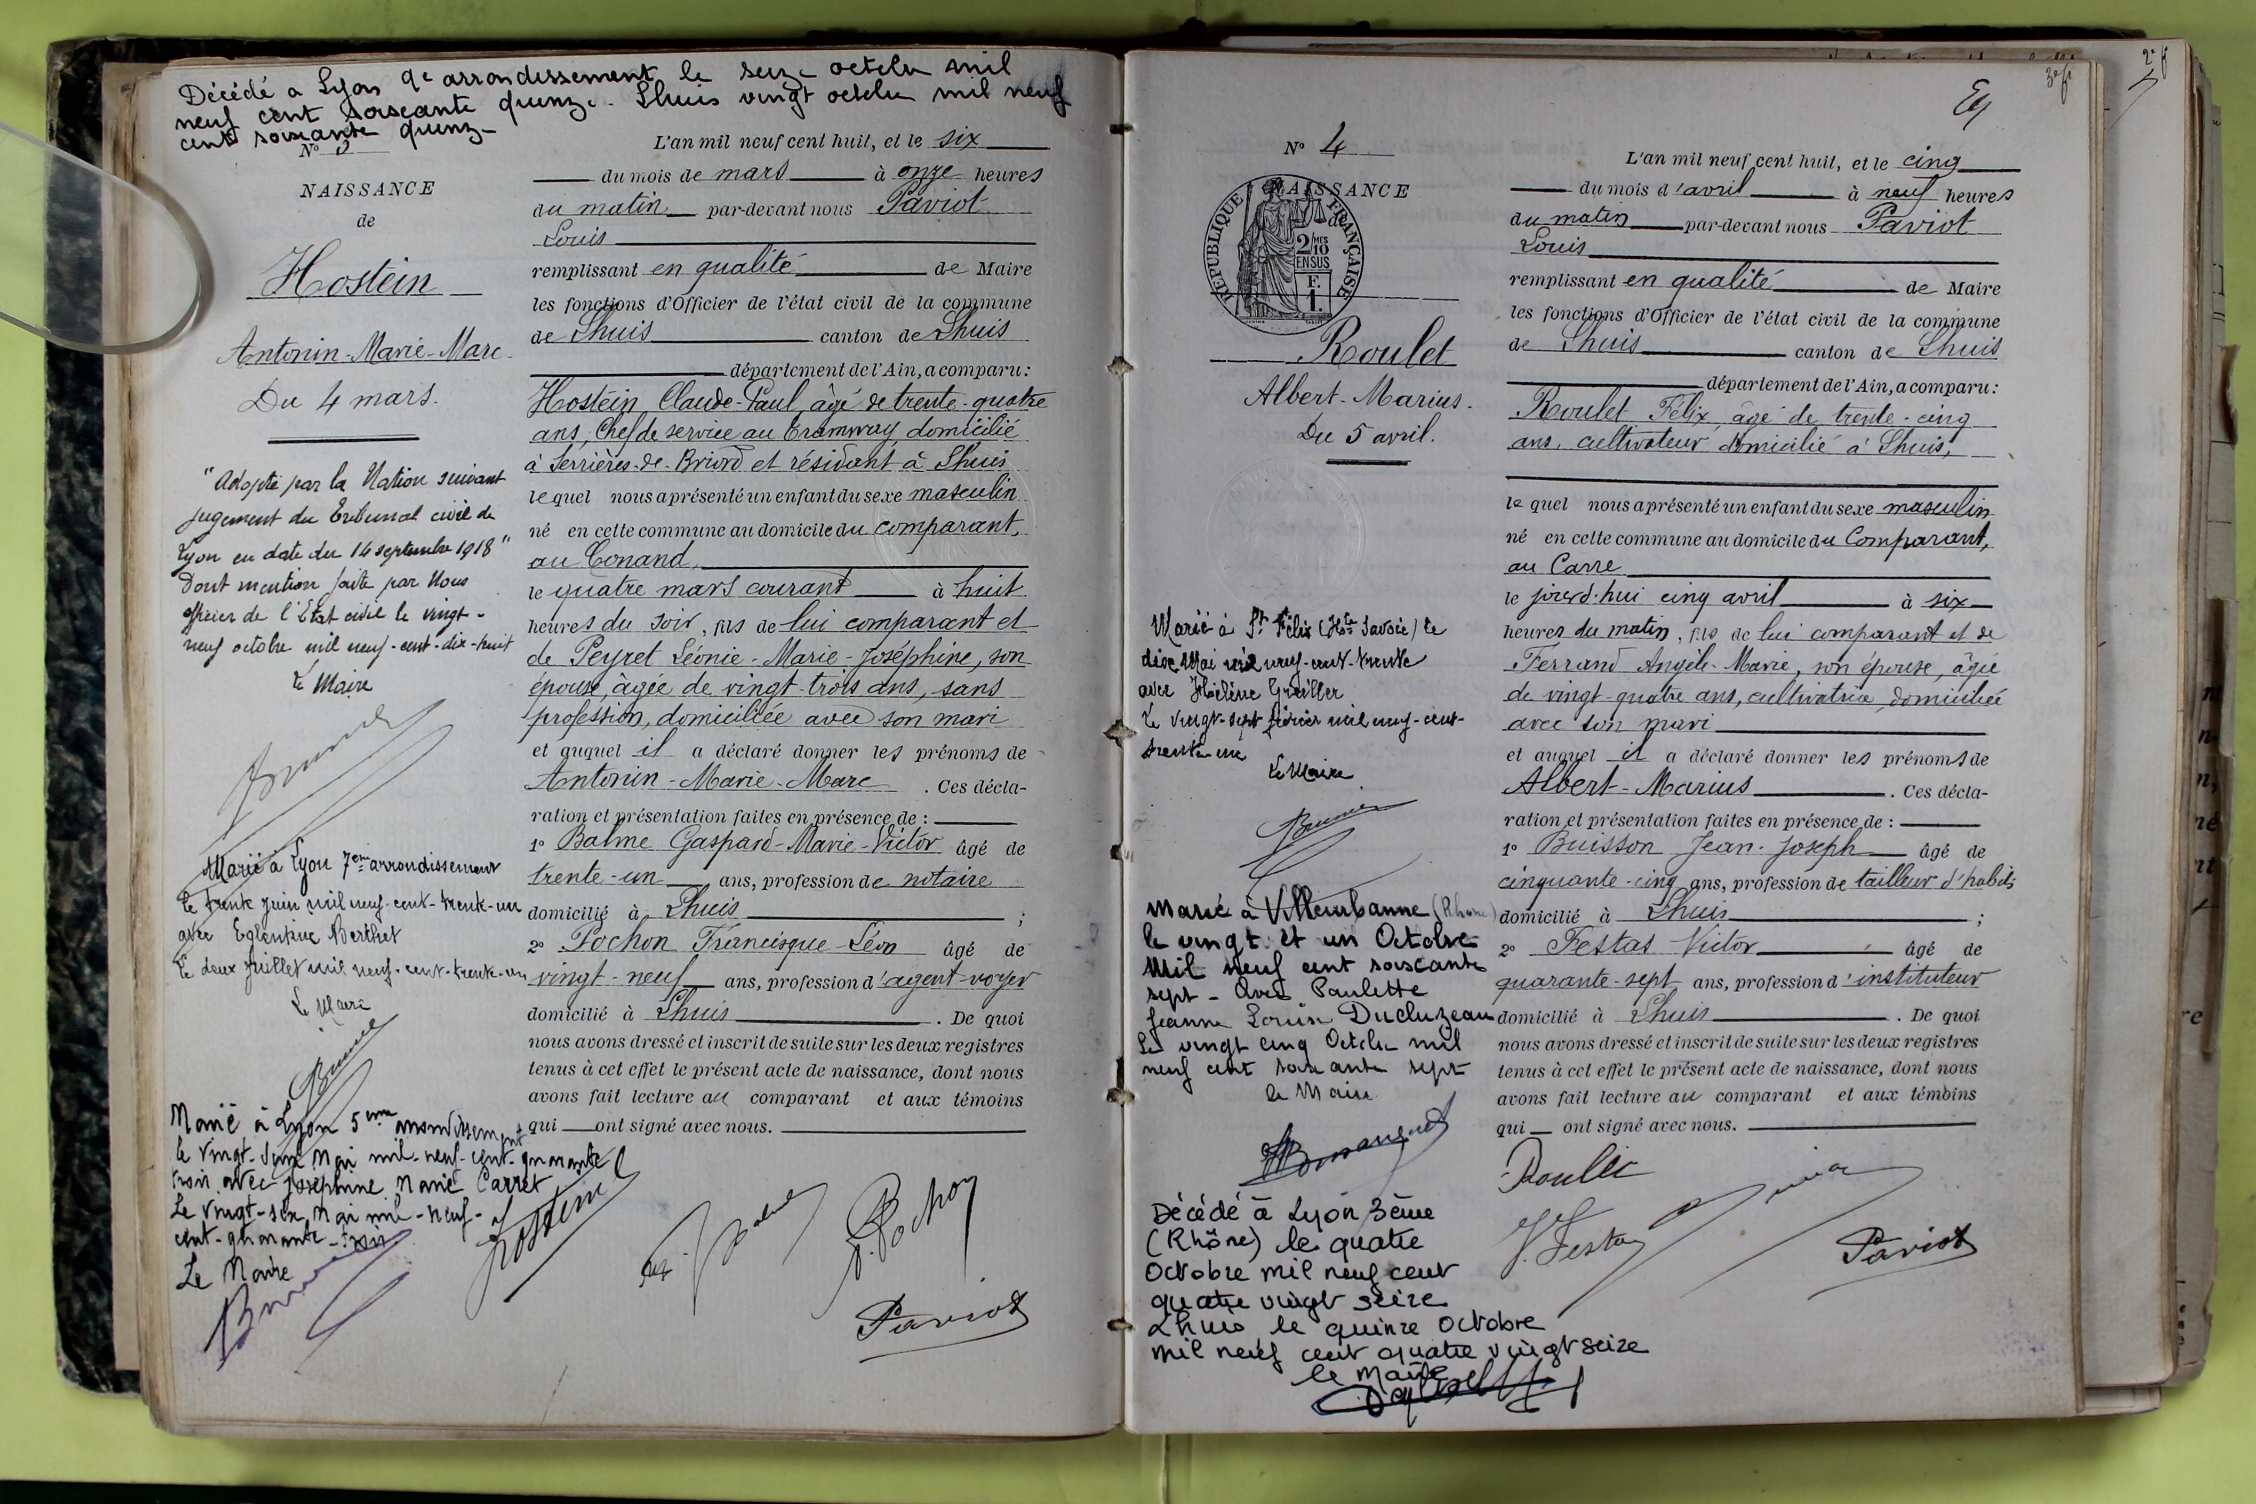 Décédé a Lyon 9e arrondissement le seize octobre mil
neuf cent soixante quinze. Lhuis vingt octobre mil neuf
cent soixante quinze
N° 3
NAISSANCE
de
Hostein
Antonin-Marie-Marc
Du 4 mars.
"Adopté par la Nation suivant
jugement du Tribunal civil de
Lyon en date du 14 septembre 1918"
Dont mention faite par Nous
officier de l'Etat civil le vingt-
neuf octobre mil neuf-cent-dix-huit
Le Maire
Marié à Lyon 7eme arrondissement
le trente juin mil neuf-cent-trente-un
avec Eglentine Berthet
Le deux juillet mil neuf-cent-trente-un
Le Maire
Marié à Lyon 5eme arrondissement
le vingt-deux Mai mil-neuf-cent-quarante
trois avec Joséphine Marie Carret
Le vingt-six Mai mil-neuf-
cent-quarante-trois
Le Maire
L'an mil neuf cent huit, et le six
du mois de mars à onze heures
du matin par-devant nous Paviot
Louis
remplissant en qualité de Maire
les fonctions d'Officier de l'état civil de la commune
de Lhuis canton de Lhuis
département de l'Ain, a comparu:
Hostein Claude-Paul, âgé de trente-quatre
ans, Chef de service au Tramway, domicilié
à Serrières-de-Briord et résidant à Lhuis
lequel nous a présenté un enfant du sexe masculin
né en cette commune au domicile du comparant,
au Conand,
le quatre mars courant à huit
heures du soir, fils de lui comparant et
de Peyret Léonie-Marie-Joséphine, son
épouse, âgée de vingt-trois ans, sans
profession, domiciliée avec son mari
et auquel il a déclaré donner les prénoms de
Antonin-Marie-Marc. Ces décla-
ration et présentation faites en présence de :
1° Balme Gaspard-Marie-Victor âgé de
trente-un ans, profession de notaire
domicilié à Lhuis ;
2° Pochon Francisque-Léon âgé de
vingt-neuf ans, profession d'agent-voyer
domicilié à Lhuis. De quoi
nous avons dressé et inscrit de suite sur les deux registres
tenus à cet effet le présent acte de naissance, dont nous
avons fait lecture au comparant et aux témoins
qui ont signé avec nous.
Hostein
Pochon
Paviot
N° 4
NAISSANCE
de
RÉPUBLIQUE FRANÇAISE
2/MES
10
EN SUS
F.
1.
Roulet
Albert-Marius.
Du 5 avril.
Marié à St Félix (Hte Savoie) le
dix Mai mil neuf-cent-trente
avec Hélène
Le vingt-sept février mil neuf-cent-
trente-un
Le Maire
Marié a Villeurbanne (Rhône)
le vingt et un Octobre
Mil neuf cent soixante
sept - avec Paulette
Jeanne Louise Ducluzeau
Le vingt cinq Octobre mil
neuf cent soixante sept
le Maire
Décédé à Lyon 3ème
(Rhône) le quatre
Octobre mil neuf cent
quatre vingt seize
Lhuis le quinze Octobre
mil neuf cent quatre vingt seize
le Maire
3e f.
2e f
L'an mil neuf cent huit, et le cinq
du mois d'avril à neuf heures
du matin par-devant nous Paviot
Louis
remplissant en qualité de Maire
les fonctions d'Officier de l'état civil de la commune
de Lhuis canton de Lhuis
département de l'Ain, a comparu:
Roulet Félix, âgé de trente-cinq
ans, cultivateur, domicilié à Lhuis,
lequel nous a présenté un enfant du sexe masculin
né en cette commune au domicile du Comparant,
au Carre
le jourd'hui cinq avril à six
heures du matin, fils de lui comparant et de
Ferrand Angèle-Marie, son épouse, âgée
de vingt-quatre ans, cultivatrice, domiciliée
avec son mari
et auquel il a déclaré donner les prénoms de
Albert-Marius. Ces décla-
ration et présentation faites en présence de :
1° Buisson Jean-Joseph âgé de
cinquante-cinq ans, profession de tailleur d'habits
domicilié à Lhuis ;
2° Festas Victor âgé de
quarante-sept ans, profession d'instituteur
domicilié à Lhuis. De quoi
nous avons dressé et inscrit de suite sur les deux registres
tenus à cet effet le présent acte de naissance, dont nous
avons fait lecture au comparant et aux témoins
qui ont signé avec nous.
Roulet
V. Festas
Paviot